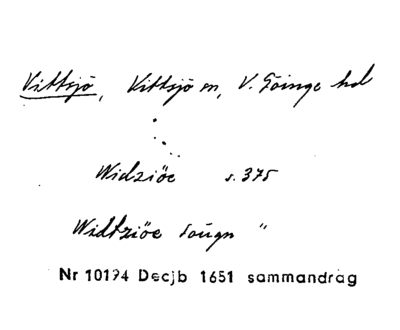 Vittsjö, Vittsjö sn, V. Göinge hd
Widziöe s. 375
Widtziöe Sougn "
Nr 10194 Decjb 1651 sammandrag